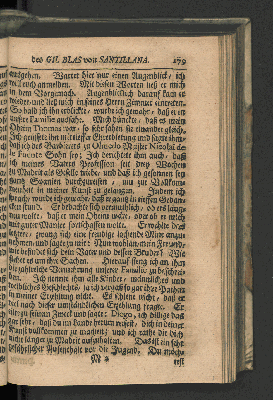 des GIL BLAS von SANTILLANA. 179
entgehen. Wartet hier nur einen Augenblick, ich
will euch anmelden. Mit diesen Worten ließ er mich
in dem Vorgemach. Augenblicklich darauf kam er
wieder und ließ mich in seines Herrn Zimmer eintreten.
So bald ich ihn erblickte, wurde ich gewahr, daß er
unsrer Familie aussahe. Mich dünckte, daß es mein
Oheim Thomas wär, so sehr sahen sie einander gleich.
Ich grüßte ihn mit tiefer Ehrerbietung und sagte ihm
ich des Barbierers zu Olmedo Meister Nicolai de
la Fuente Sohn sey; Ich berichtete ihm auch, daß
ich meines Vaters Profession seit drey Wochen
zu Madrit als Geselle triebe, und daß ich gesonnen sey
gantz Spanien durchzureisen, um zur Vollkom-
menheit in meiner Kunst zu gelangen. Indem ich
wurde ich gewahr, daß er gantz in tieffen Gedan-
cken stund. Er bedachte sich vermuthlich, ob er es läug-
nen wolte, daß er mein Oheim wäre, oder ob er mich
guter Manier fortschaffen wolte. Er wehlte das
letztere; zwung sich eine freudige lachende Mine anzu-
nehmen, und sagte zu mir: Nun wohlan, mein Freund,
wie befindet sich dein Vater und dessen Brüder? Wie
stehet es um ihre Sachen. Hierauf fieng ich an ihm
die zahlreiche Vermehrung unsrer Familie zu beschrei-
ben. Ich nennte ihm alle Kinder, männliches und
weibliches Geschlechts, ja ich vergaß so gar ihre Pathen
in meiner Erzehlung nicht. Es schiene nicht, daß er
sich nach dieser umständlichen Erzehlung
zu seinem Zweck und sagte: Diego, ich billige das
gar sehr, daß du im Lande herum reisest, dich in deiner
Kunst vollkommen zu machen; und ich rathe dir dich
nicht länger zu Madrit aufzuhalten. Das ist ein sehr
gefährlicher Aufenthalt vor die Jugend, Du möch-
M 2 test